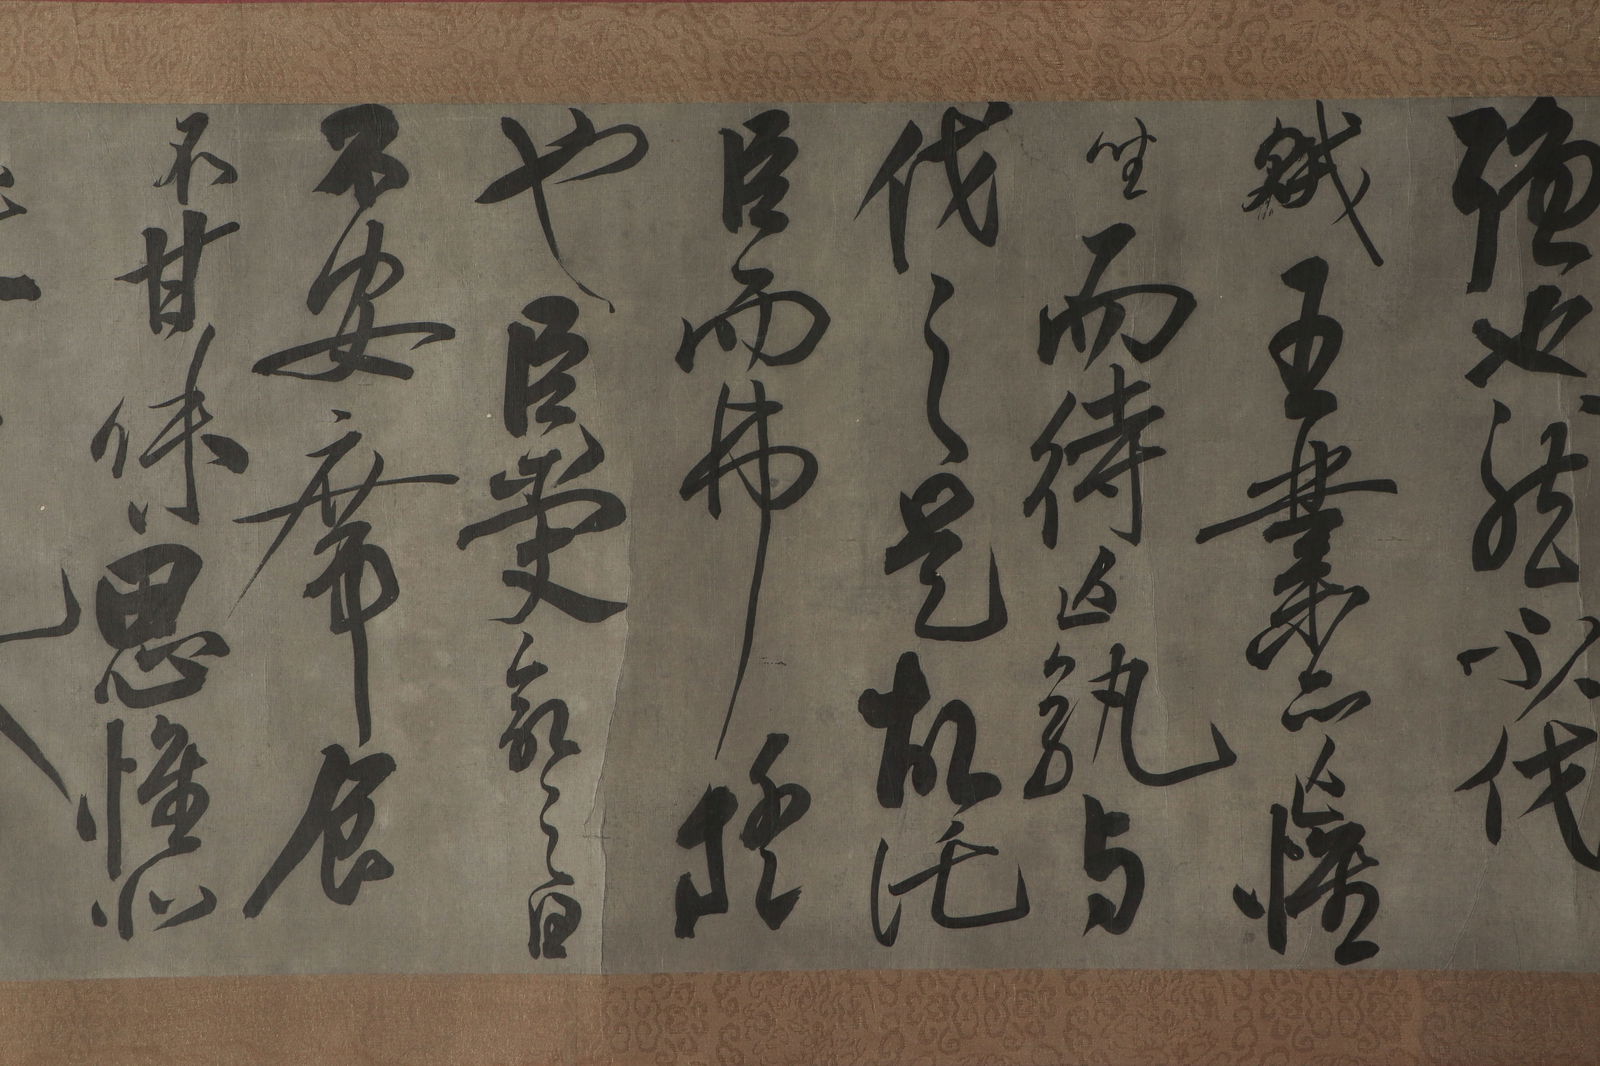 強也然不伐
賊王業亦亡惟
坐而待亡孰與
伐之是故託
臣而弗疑
也臣受命之日
不安席食
不甘味思惟北